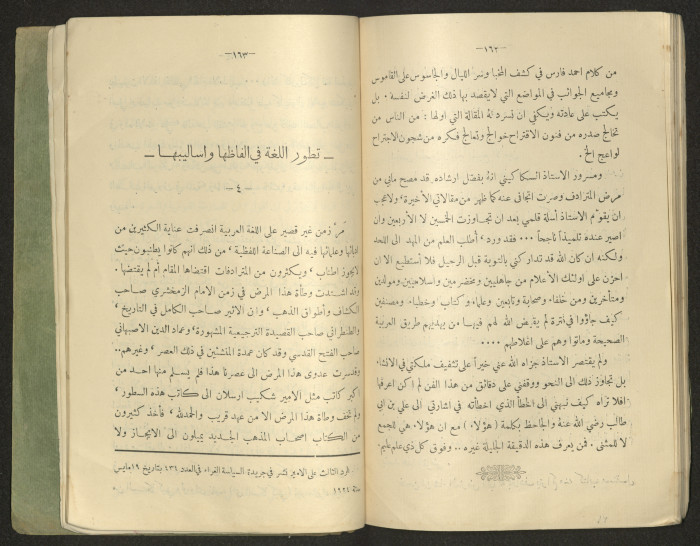 —١٦٢—
من كلام احمد فارس في كشف المخبا وسر الليال والجاسوس على القاموس
ومجاميع الجوائب في المواضع التي لا يقصد بها ذلك الغرض لنفسه . بل
يكتب على عادته ويكفي ان نسرد لهُ المقالة التي اولها : من الناس من
تخالج صدره من فنون الاقتراح خوالج وتعالج فكره من شجون الاجتراح
لواعج الخ .
ومسرور الاستاذ السكاكيني انهُ بفضل ارشاده قد مصح مابي من
مرض المترادف وصرت اتجافى عنه كما ظهر من مقالاتي الأخيرة ، ولا عجب
ان يقوّم الاستاذ أسلة قلمي بعد ان تجاوزت الخمسين لا الأربعين وان
اصير عنده تلميذاً ناجحاً ٠٠٠ فقد ورد ، أطلب العلم من المهد الى اللحد
ولكنه ان كان الله قد تداركني بالتوبة قبل الرحيل فلا أستطيع الا ان
احزن على اولئك الأعلام من جاهليين ومخضرمين واسلاميين ومولدين
ومتأخرين ومن خلفاء وصحابة وتابعين وعلماء وكتاب وخطباء ومصنفين
كيف جاؤوا في فترة لم يقبض الله لهم فيها من يهديهم طريق العربية
الصحيحة وماتوا وهم على اغلاطهم ٠٠٠٠
ولم يقتصر الاستاذ جزاه الله عني خيراً على تثقيف ملكتي في الانشاء
بل تجاوز ذلك الى النحو ووقفني على دقائق من هذا الفن لم اكن اعرفها
افلا تراه كيف نبهني الى الخطأ الذي اخطأته في اشارتي الى علي بن ابي
طالب رضي الله عنهُ والجاحظ بكلمة ( هؤلاء ) مع ان هؤلاء هي للجمع
لا للمثنى . فمن يعرف هذه الدقيقة الجليلة غيره ٠٠ وفوق كل ذي علم عليم
—١٦٣—
ـ تطور اللغة في الفاظها واساليبها ـ
ـ ٤ ـ
مرّ زمن غير قصير على اللغة العربية انصرفت عناية الكثيرين من
ادبائها وعلمائها فيه الى الصناعة اللفظية ، من ذلك انهم كانوا يطنبون حيث
لا يجوز اطناب ، ويكثرون من المترادفات اقتضاها المقام أم لم يقتضها .
وقد اشتدت وطأة هذا المرض في زمن الامام الزمخشري صاحب
الكشاف وأطواق الذهب ، وابن الاثير صاحب الكامل في التاريخ ،
والطنطراني صاحب القصيدة الترجيعية المشهورة ، وعماد الدين الاصبهاني
صاحب الفتح القدسي وقد كان عمدة المنشئين في ذلك العصر ، وغيرهم ..
وقد سرت عدوى هذا المرض الى عصرنا هذا فلم يسلم منها احد من
اكبر كاتب مثل الامير شكيب ارسلان الى كاتب هذه السطور ،
ولم تخف وطأة هذا المرض الا من عهد قريب والحمد لله ، فأخذ كثيرون
من الكتاب اصحاب المذهب الجديد يميلون الى الايجاز ولا
الرد الثالث على الامير نشر في جريدة السياسة الغراء في العدد ٤٣٦ بتاريخ ١٩ مارس
سنة ١٩٢٤